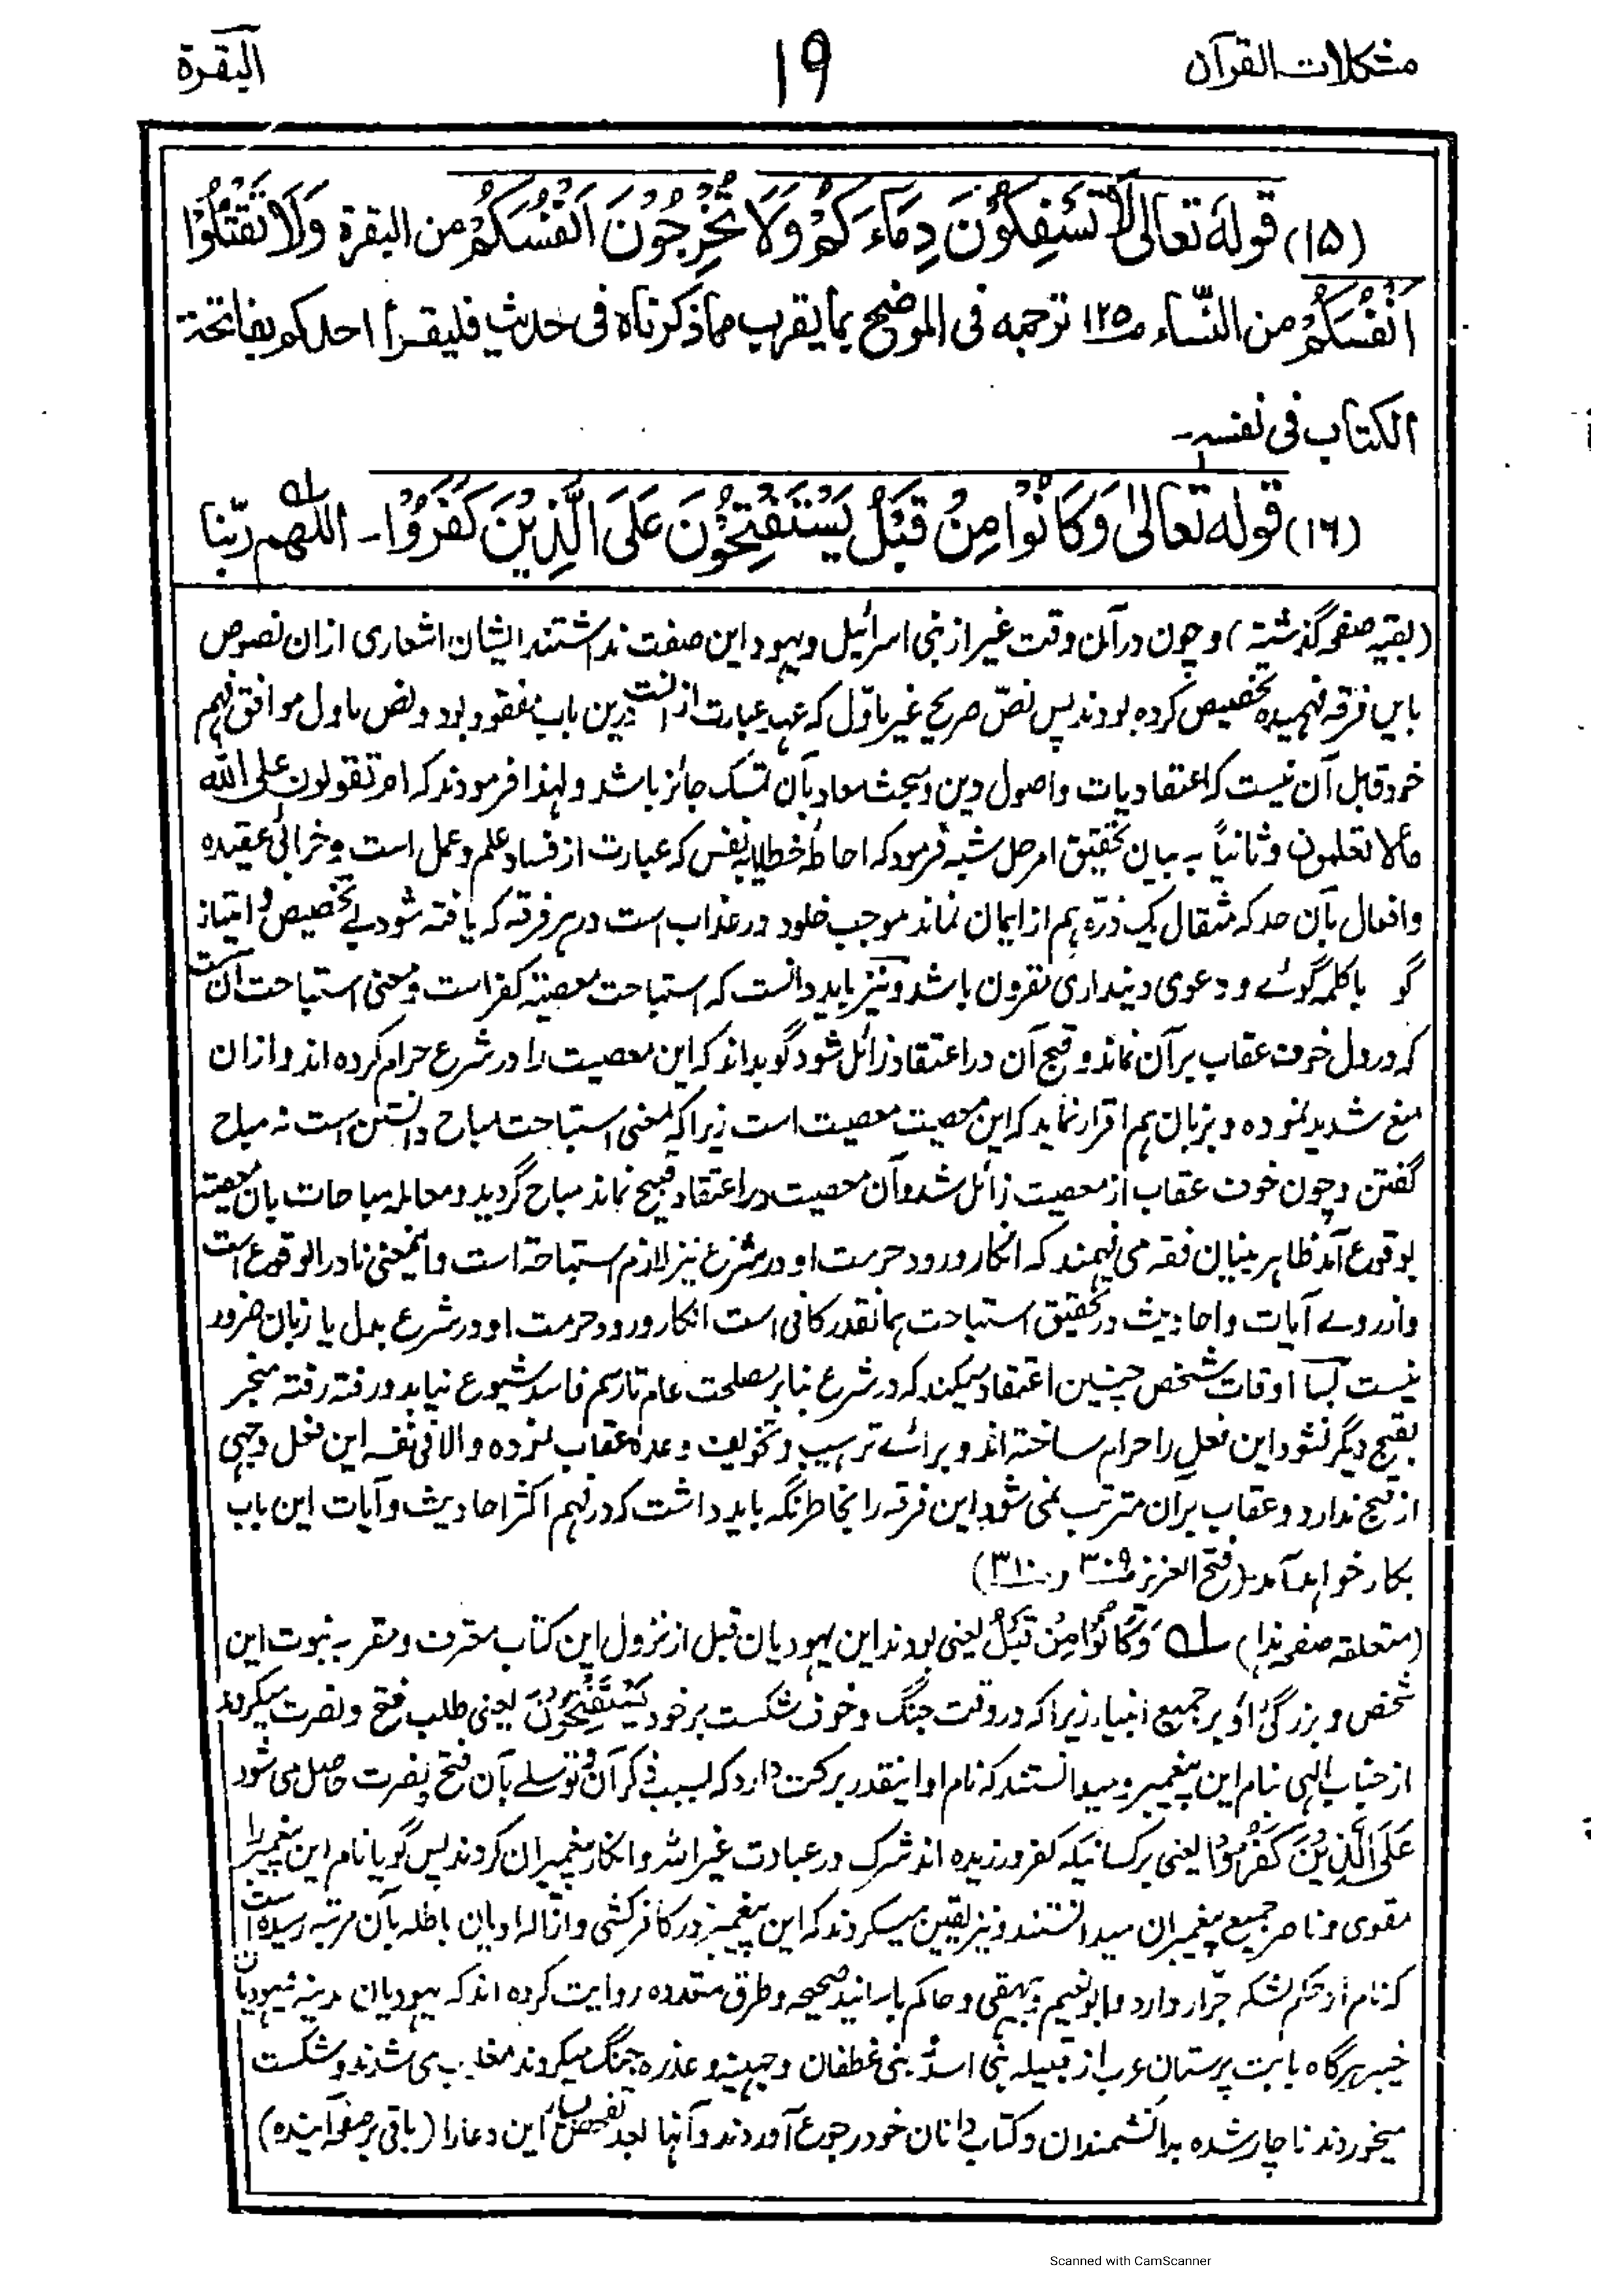 مشکلات القرآن
19
البقرة
(۱۵) قوله تعالی لَا تَسْفِكُوْنَ دِمَآءَكُمْ وَلَا تُخْرِجُوْنَ اَنْفُسَكُمْ من البقرة وَلَا تَقْتُلُوْا
اَنْفُسَكُمْ من النساء ص۱۲۵ ترجمه فی الموضح بما یقرب مما ذکرناه فی حدیث فلیقرأ احدکم بفاتحة
الکتاب فی نفسه۔
(۱۶) قوله تعالیٰ وَكَانُوْا مِنْ قَبْلُ يَسْتَفْتِحُوْنَ عَلَى الَّذِيْنَ كَفَرُوْا۔ اللّٰهم ربّنا
(بقیہ صفحہ گذشتہ) و چون در آن وقت غیر از بنی اسرائیل و یہود این صفت نداشتند ایشان اشعاری ازان نصوص
باین فرقہ فہمیدہ تخصیص کردہ بودند پس نصّ صریح غیر ماوّل کہ عہد عبارت از انست درین باب مفقود بود و نص ماول موافق فہم
خود قابل آن نیست کہ اعتقادیات و اصول دین و بحث معاد بآن تمسک جائز باشد و لہٰذا فرمودند کہ ام تقولون علی اللّٰه
مالا تعلمون و ثانیاً بہ بیان تحقیق امر حل شبہ فرمود کہ احاطۂ خطایا بہ نفس کہ عبارت از فساد علم و عمل است و خرابی عقیدہ
و افعال بآن حد کہ مثقال یک ذرّہ ہم از ایمان نماند موجب خلود در عذاب است در ہر فرقہ کہ یافتہ شود بے تخصیص و امتیاز
گو باکلمہ گوئے و دعوی دینداری مقرون باشد و نیز باید دانست کہ استباحت معصیة کفر است و معنی استباحت آن است
کہ در دل خوف عقاب بر آن نماند و قبح آن در اعتقاد زائل شود گو بداند کہ این معصیت را در شرع حرام کردہ اند و ازان
منع شدید نمودہ و بزبان ہم اقرار نماید کہ این معصیت معصیت است زیرا کہ معنی استباحت مباح دانستن است نہ مباح
گفتن و چون خوف عقاب از معصیت زائل شد و آن معصیت در اعتقاد قبیح نماند مباح گردید و معاملہ مباحات بآن معصیة
بوقوع آمد ظاہر بینان فقہ می فہمند کہ انکار ورود حرمت او در شرع نیز لازم استباحة است و این معنی نادر الوقوع است
و از روے آیات و احادیث در تحقیق استباحت ہمانقدر کافی است انکار ورود حرمت او در شرع بدل یا زبان ضرور
نیست بسا اوقات شخص چنین اعتقاد میکند کہ در شرع بنا بر مصلحت عام تا رسم فاسد شیوع نیابد و رفتہ رفتہ منجر
بقبح دیگر نشود این فعل را حرام ساختہ اند و برائے ترہیب و تخویف وعدۂ عقاب نمودہ و الا فی نفسہ این فعل وجہی
از قبح ندارد و عقاب بر آن مترتب نمی شود این فرقہ را بخاطر نگہ باید داشت کہ در فہم اکثر احادیث و آیات این باب
بکار خواہد آمد (فتح العزیز ص۳۰۹ و ۳۱۰)
(متعلقہ صفحہ ہذا) سلہ وَكَانُوْا مِنْ قَبْلُ یعنی بودند این یہودیان قبل از نزول این کتاب معترف و مقر بہ نبوت این
شخص و بزرگی او بر جمیع انبیاء زیرا کہ در وقت جنگ و خوف شکست بر خود يَسْتَفْتِحُوْنَ یعنی طلب فتح و نصرت میکردند
از جناب الٰہی بنام این پیغمبر و میدانستند کہ نام او اینقدر برکت دارد کہ بسبب ذکر آن و توسل بآن فتح و نصرت حاصل می شود
عَلَى الَّذِيْنَ كَفَرُوْا یعنی بر کسانیکہ کفر ورزیدہ اند شرک در عبادت غیر اللہ و انکار پیغمبران کردند پس گویا نام این پیغمبر را
مقوی و ناصر جمیع پیغمبران میدانستند و نیز یقین میکردند کہ این پیغمبر در کافر کشی و ازالہ ادیان باطلہ بآن مرتبہ رسیدہ است
کہ نام او حکم لشکر جرّار دارد و ابو نعیم و بیہقی و حاکم باسانید صحیحہ و طرق متعددہ روایت کردہ اند کہ یہودیان مدینہ و یہودیان
خیبر ہر گاہ با بت پرستان عرب از قبیلہ بنی اسد و بنی غطفان و جہینہ و عذرہ جنگ میکردند مغلوب می شدند و شکست
میخوردند ناچار شدہ بدانشمندان و کتاب دانان خود رجوع آوردند و آنہا بعد تفحص بسیار این دعا را (باقی بر صفحہ آیندہ)
Scanned with CamScanner